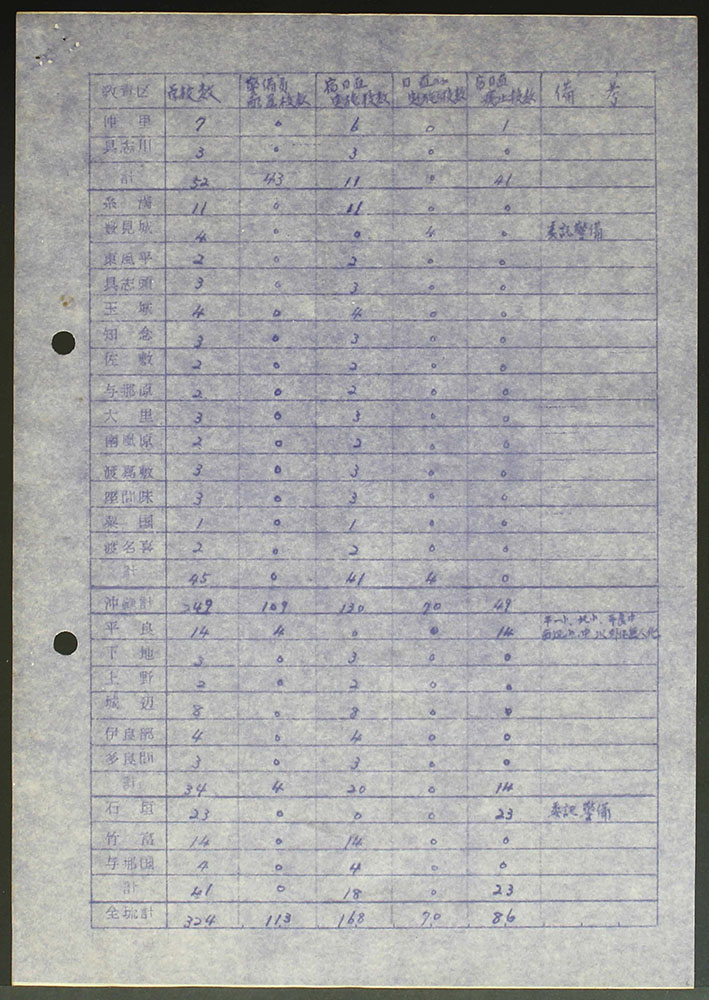 教育区 本校数 警備員配置校数 宿日直実施校数 日直のみ実施校数 宿日直廃止校数 備考
仲里 7 0 6 0 1
具志川 3 0 3 0 0
計 52 43 11 0 41
糸満 11 0 11 0 0
豊見城 4 0 0 4 0 委託警備
東風平 2 0 2 0 0
具志頭 3 0 3 0 0
玉城 4 0 4 0 0
知念 3 0 3 0 0
佐敷 2 0 2 0 0
与那原 2 0 2 0 0
大里 3 0 3 0 0
南風原 2 0 2 0 0
渡嘉敷 3 0 3 0 0
座間味 3 0 3 0 0
粟国 1 0 1 0 0
渡名喜 2 0 2 0 0
計 45 0 41 4 0
沖縄計 249 109 130 70 49
平良 14 4 0 0 14
下地 3 0 3 0 0
上野 2 0 2 0 0
城辺 8 0 8 0 0
伊良部 4 0 4 0 0
多良間 3 0 3 0 0
計 34 4 20 0 14
石垣 23 0 0 0 23 委託警備
竹富 14 0 14 0 0
与那国 4 0 4 0 0
計 41 0 18 0 23
全琉計 324 113 168 70 86